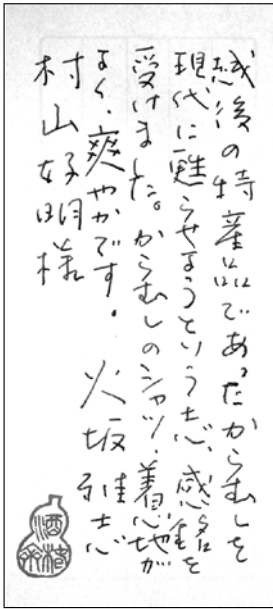 越後の特産品であったからむしを
現代に甦らせようという志、感銘を
受けました。からむしのシャツ、着心地が
よく、爽やかです。
火坂雅志
村山好明様